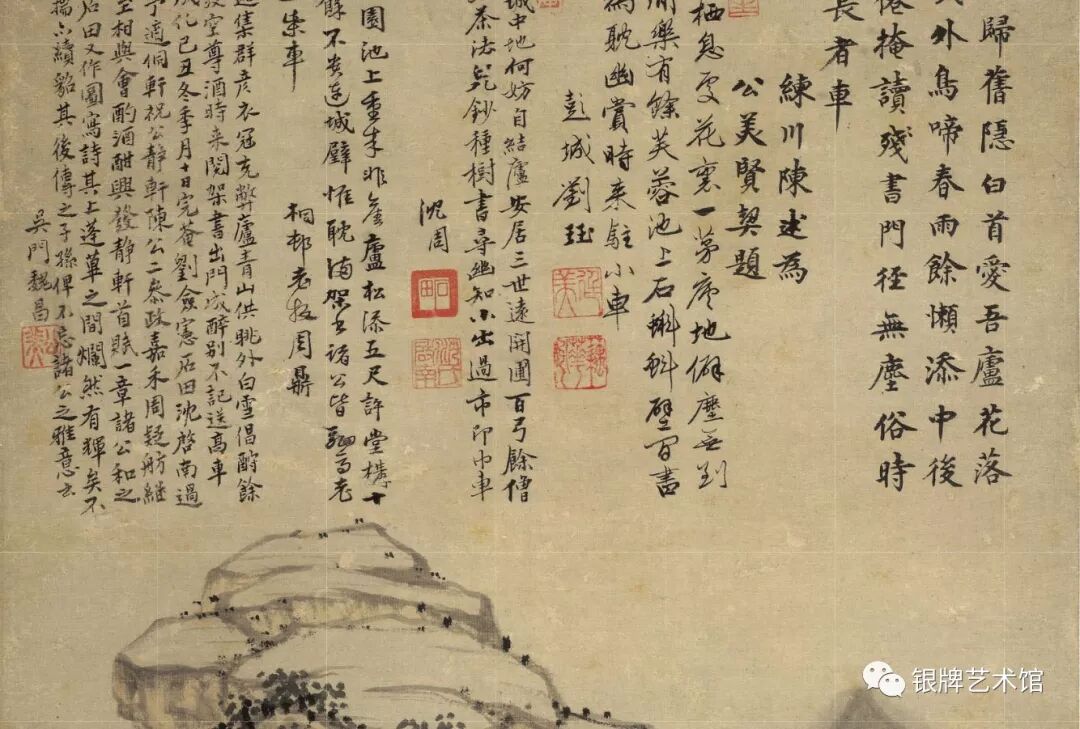 歸舊隱白首愛吾廬花落
外鳥啼春雨餘懶添中後
倦掩讀殘書門徑無塵俗時
長者車
練川陳述為
公美賢契題
栖息處花裏一茅廬地僻塵無到
閒樂有餘芙蓉池上石蝌蚪壁間書
為耽幽賞時來駐小車
彭城劉珏
廷美
城中地何妨自結廬安居三世遠開圃百弓餘僧
茶法兒鈔種樹書尋幽知小出過市印巾車
沈周
園池上重來非舊廬松添五尺許堂構十
餘不貪連城璧惟耽滿架書諸公皆駟馬老
柴車
桐邨老牧周鼎
集群彥衣冠充弊廬青山供眺外白雪倡酬餘
空尊酒時來閱架書出門成醉別不記送高車
成化己丑冬季月十日完菴劉僉憲石田沈啓南過
予適侗軒祝公靜軒陳公二參政嘉禾周疑舫繼
至相與會酌酒酣興發靜軒首賦一章諸公和之
石田又作圖寫詩其上蓬蓽之間爛然有輝矣不
揣亦續貂其後傳之子孫俾不忘諸公之雅意云
吳門魏昌
银牌艺术馆